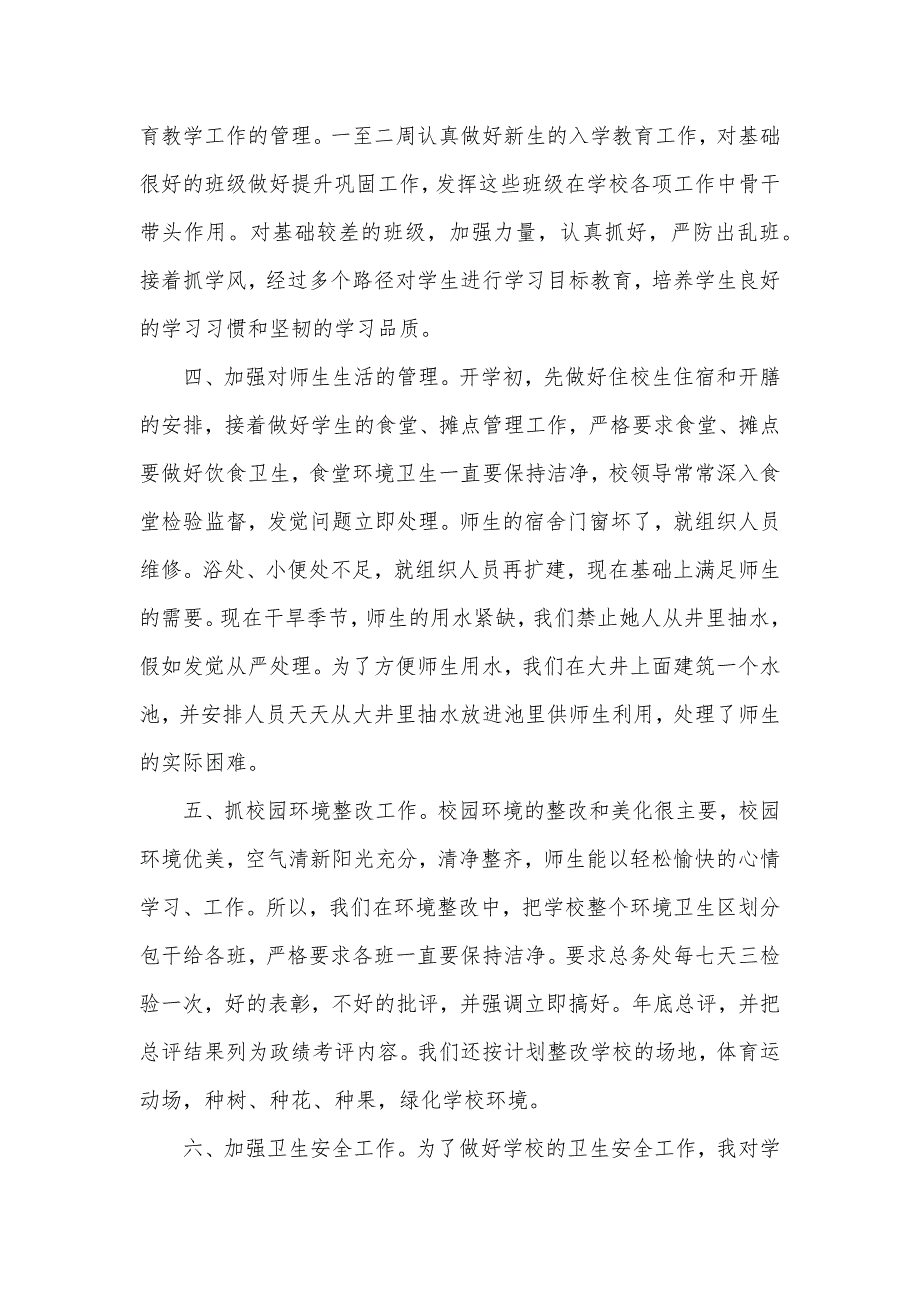 育教学工作的管理。一至二周认真做好新生的入学教育工作，对基础
很好的班级做好提升巩固工作，发挥这些班级在学校各项工作中骨干
带头作用。对基础较差的班级，加强力量，认真抓好，严防出乱班。
接着抓学风，经过多个路径对学生进行学习目标教育，培养学生良好
的学习习惯和坚韧的学习品质。
四、加强对师生生活的管理。开学初，先做好住校生住宿和开膳
的安排，接着做好学生的食堂、摊点管理工作，严格要求食堂、摊点
要做好饮食卫生，食堂环境卫生一直要保持洁净，校领导常常深入食
堂检验监督，发觉问题立即处理。师生的宿舍门窗坏了，就组织人员
维修。浴处、小便处不足，就组织人员再扩建，现在基础上满足师生
的需要。现在干旱季节，师生的用水紧缺，我们禁止她人从井里抽水，
假如发觉从严处理。为了方便师生用水，我们在大井上面建筑一个水
池，并安排人员天天从大井里抽水放进池里供师生利用，处理了师生
的实际困难。
五、抓校园环境整改工作。校园环境的整改和美化很主要，校园
环境优美，空气清新阳光充分，清净整齐，师生能以轻松愉快的心情
学习、工作。所以，我们在环境整改中，把学校整个环境卫生区划分
包干给各班，严格要求各班一直要保持洁净。要求总务处每七天三检
验一次，好的表彰，不好的批评，并强调立即搞好。年底总评，并把
总评结果列为政绩考评内容。我们还按计划整改学校的场地，体育运
动场，种树、种花、种果，绿化学校环境。
六、加强卫生安全工作。为了做好学校的卫生安全工作，我对学